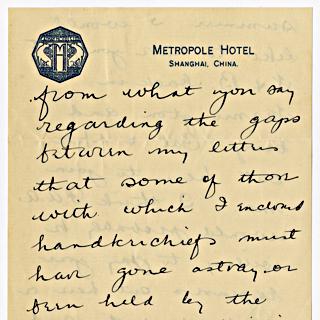 METROPOLE HOTEL
SHANGHAI, CHINA.
from what you say
regarding the gaps
between my letters
that some of those
with which I enclosed
handkerchiefs must
have gone astray or
been held by the